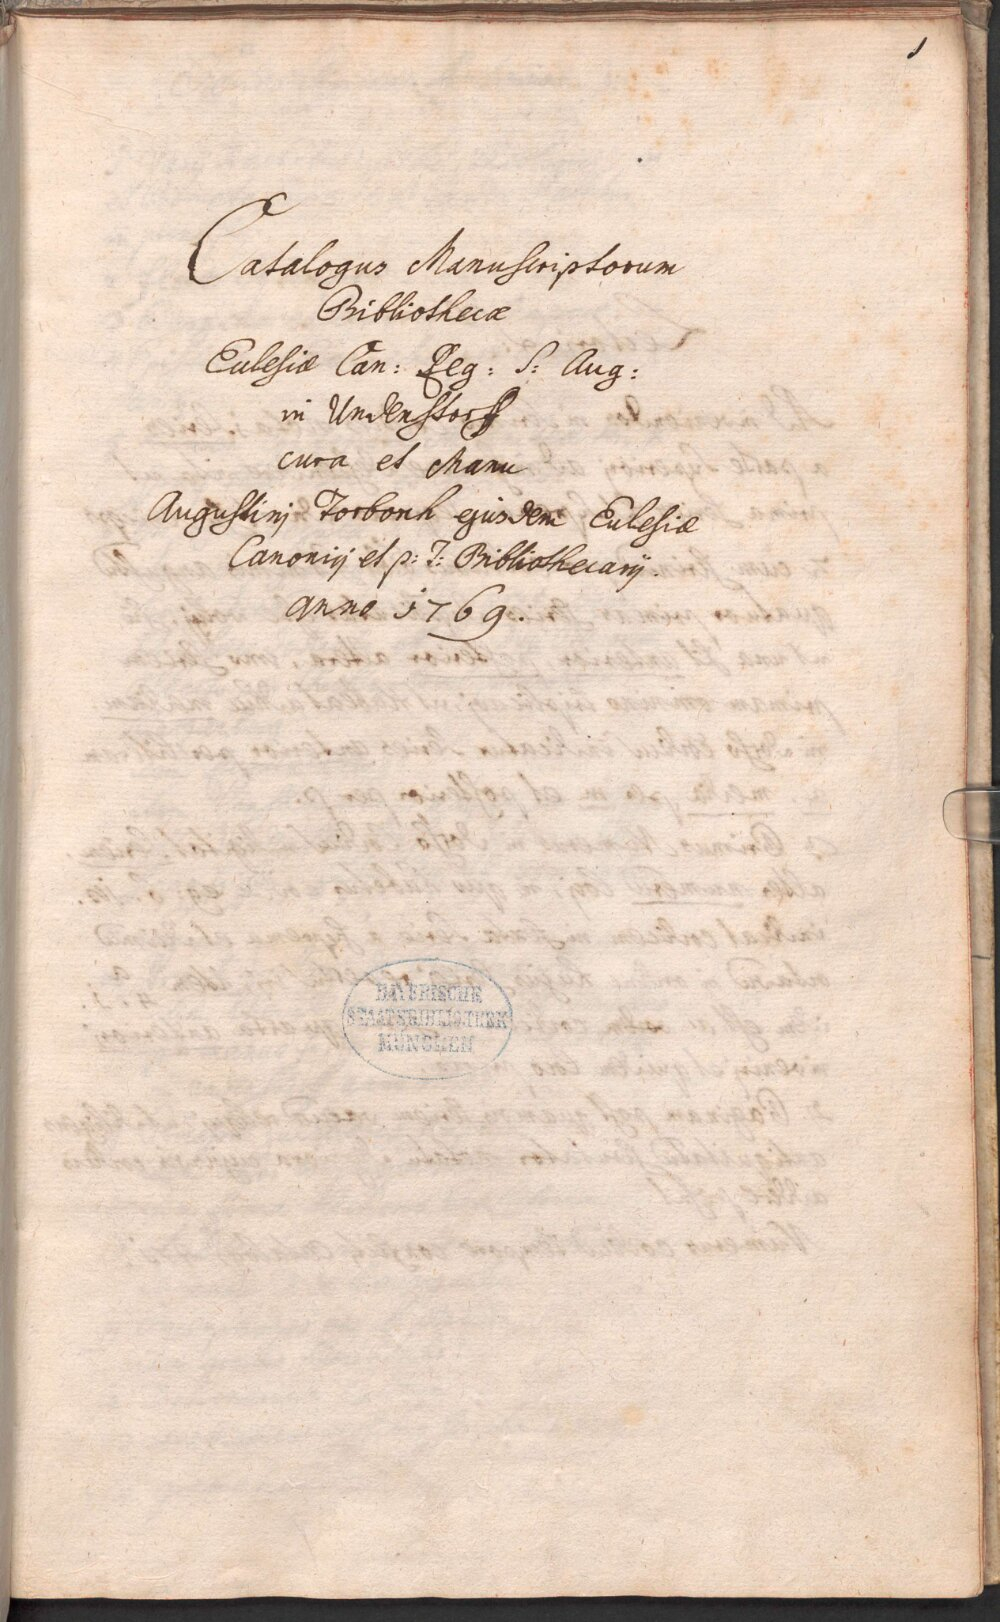 1
Catalogus Manuscriptorum
Bibliothecæ
Ecclesiæ Can: Reg: S: Aug:
in Undenstorff
cura et Manu
Augustinj Torbonk ejusdem Ecclesiæ
Canonicj et p: T: Bibliothecarij.
anno 1769.
BAYERISCHE
STAATSBIBLIOTHEK
MÜNCHEN